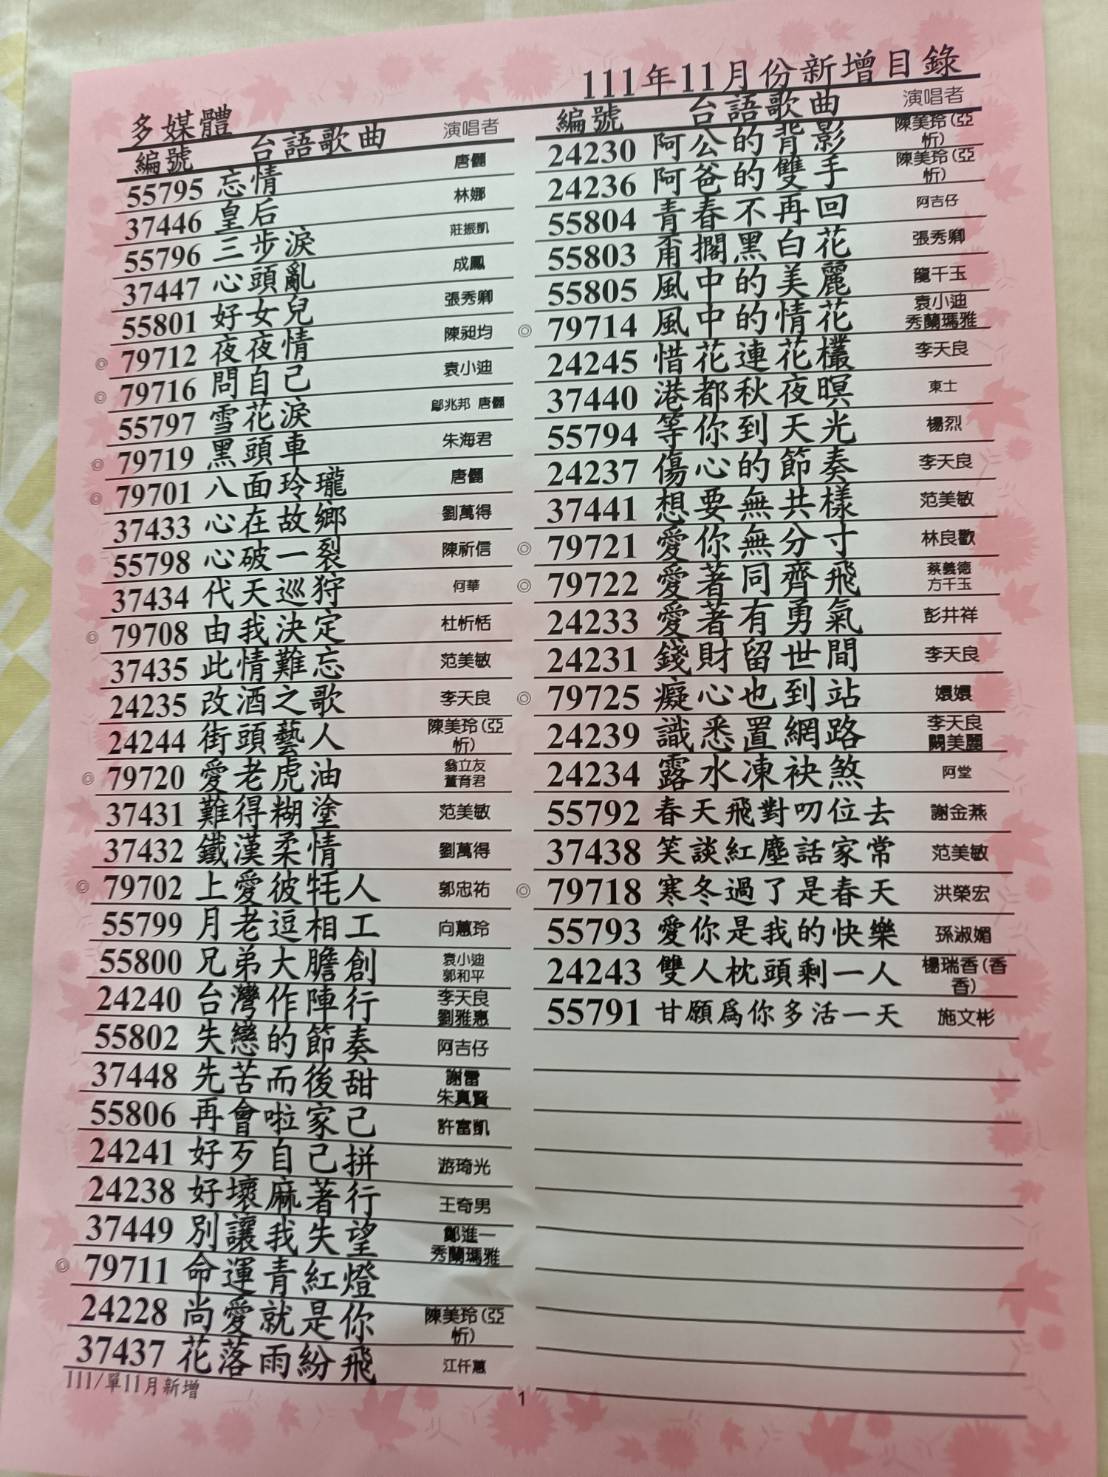 111年11月份新增目錄
多媒體
編號 台語歌曲 演唱者
55795 忘情 唐儷
37446 皇后 林娜
55796 三步淚 莊振凱
37447 心頭亂 成鳳
55801 好女兒 張秀卿
◎ 79712 夜夜情 陳昶均
◎ 79716 問自己 袁小迪
55797 雪花淚 鄔兆邦 唐儷
◎ 79719 黑頭車 朱海君
◎ 79701 八面玲瓏 唐儷
37433 心在故鄉 劉萬得
55798 心破一裂 陳祈信
37434 代天巡狩 何華
◎ 79708 由我決定 杜忻恬
37435 此情難忘 范美敏
24235 改酒之歌 李天良
24244 街頭藝人 陳美玲(亞忻)
◎ 79720 愛老虎油 翁立友 董育君
37431 難得糊塗 范美敏
37432 鐵漢柔情 劉萬得
◎ 79702 上愛彼牦人 郭忠祐
55799 月老逗相工 向蕙玲
55800 兄弟大膽創 袁小迪 郭和平
24240 台灣作陣行 李天良 劉雅惠
55802 失戀的節奏 阿吉仔
37448 先苦而後甜 謝雷 朱真賢
55806 再會啦家己 許富凱
24241 好歹自己拼 游琦光
24238 好壞麻著行 王奇男
37449 別讓我失望 鄭進一 秀蘭瑪雅
◎ 79711 命運青紅燈
24228 尚愛就是你 陳美玲(亞忻)
37437 花落雨紛飛 江仟蕙
111/單11月新增
編號 台語歌曲 演唱者
24230 阿公的背影 陳美玲(亞忻)
24236 阿爸的雙手 陳美玲(亞忻)
55804 青春不再回 阿吉仔
55803 甭擱黑白花 張秀卿
55805 風中的美麗 龍千玉
◎ 79714 風中的情花 袁小迪 秀蘭瑪雅
24245 惜花連花欉 李天良
37440 港都秋夜暝 東士
55794 等你到天光 楊烈
24237 傷心的節奏 李天良
37441 想要無共樣 范美敏
◎ 79721 愛你無分寸 林良歡
◎ 79722 愛著同齊飛 蔡義德 方千玉
24233 愛著有勇氣 彭井祥
24231 錢財留世間 李天良
◎ 79725 癡心也到站 嬛嬛
24239 識悉置網路 李天良 闕美麗
24234 露水凍袂煞 阿堂
55792 春天飛對叨位去 謝金燕
37438 笑談紅塵話家常 范美敏
◎ 79718 寒冬過了是春天 洪榮宏
55793 愛你是我的快樂 孫淑媚
24243 雙人枕頭剩一人 楊瑞香(香香)
55791 甘願為你多活一天 施文彬
1